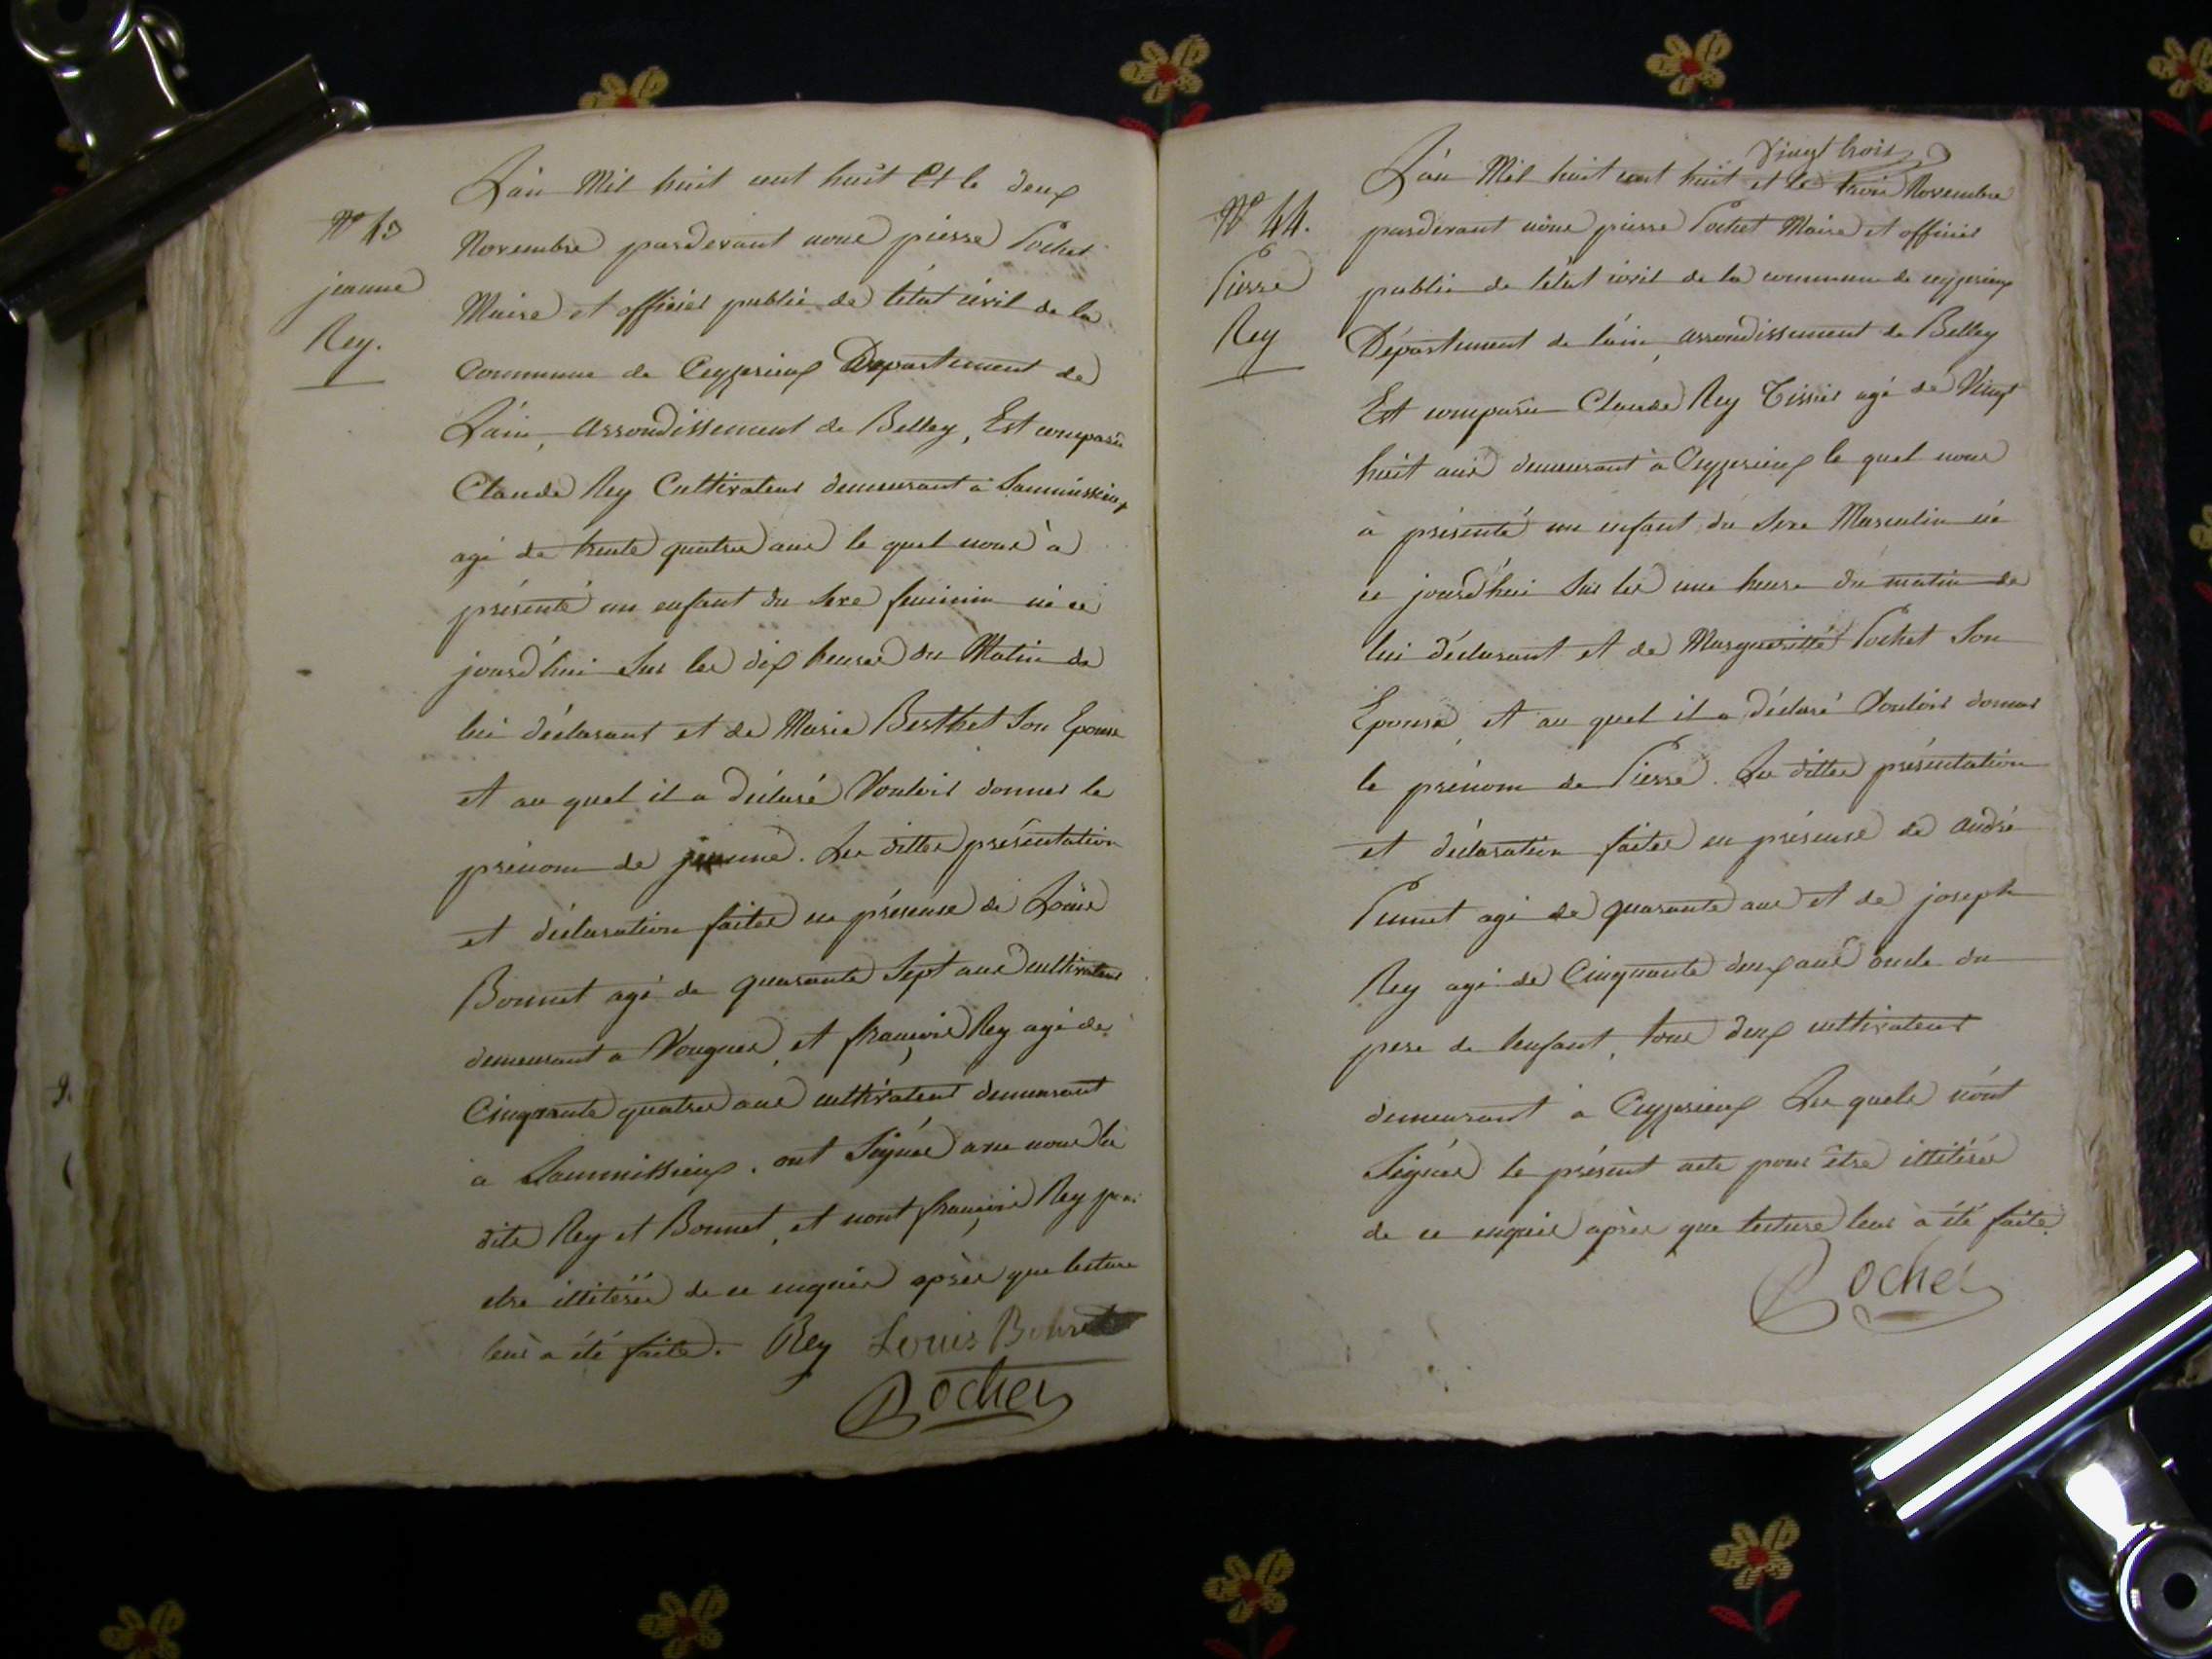 L'ain Mil huit cent huit Et le deux
Nº 43
Novembre pardevant nous pierre Pochet
jeanne
Maire et officier public de l'état civil de la
Rey.
Commune de Ceyzerieux Departement de
L'ain, arrondissement de Belley, Est comparu
Claude Rey Cultivateur demeurant à
agé de trente quatre ans le quel nous à
présenté un enfant du Sexe feminin né ce
jourd'hui Sur les dix heures du Matin de
lui déclarant et de Marie Berthet Son Epouse
et au quel il a déclaré Vouloir donner le
prénom de jeanne. Les dittes présentation
et déclaration faites en présence de Loüis
Bonnet agé de quarante Sept ans cultivateur
demeurant a Vongnes, et françois Rey agé de
Cinquante quatre ans cultivateur demeurant
a ont Signés avec nous les
dits Rey et Bonnet, et nont françois Rey pour
etre illitérés de ce enquis après que lecture
leur a été faite. Rey Louis Bonnet
Pochet
L'an Mil huit cent huit et le vingt trois Novembre
Nº 44.
pardevant nous pierre Pochet Maire et officier
Pierre
public de l'état civil de la commune de ceyzerieux
Rey
Département de l'ain, arrondissement de Belley
Est comparu Claude Rey Tissier agé de Vingt
huit ans demeurant à Ceyzerieux le quel nous
à présenté un enfant du Sexe Masculin né
ce jourd'hui Sur les une heure du matin de
lui déclarant et de Margueritte Pochet Son
Epouse, et au quel il a déclaré Vouloir donner
le prénom de Pierre. Les dittes présentation
et déclaration faites en présence de andré
agé de quarante ans et de joseph
Rey agé de Cinquante deux ans oncle du
pere de l'enfant, tous deux cultivateurs
demeurant à Ceyzerieux Les quels n'ont
Signés le présent acte pour être illitérés
de ce enquis après que lecture leur à été faite.
Pochet